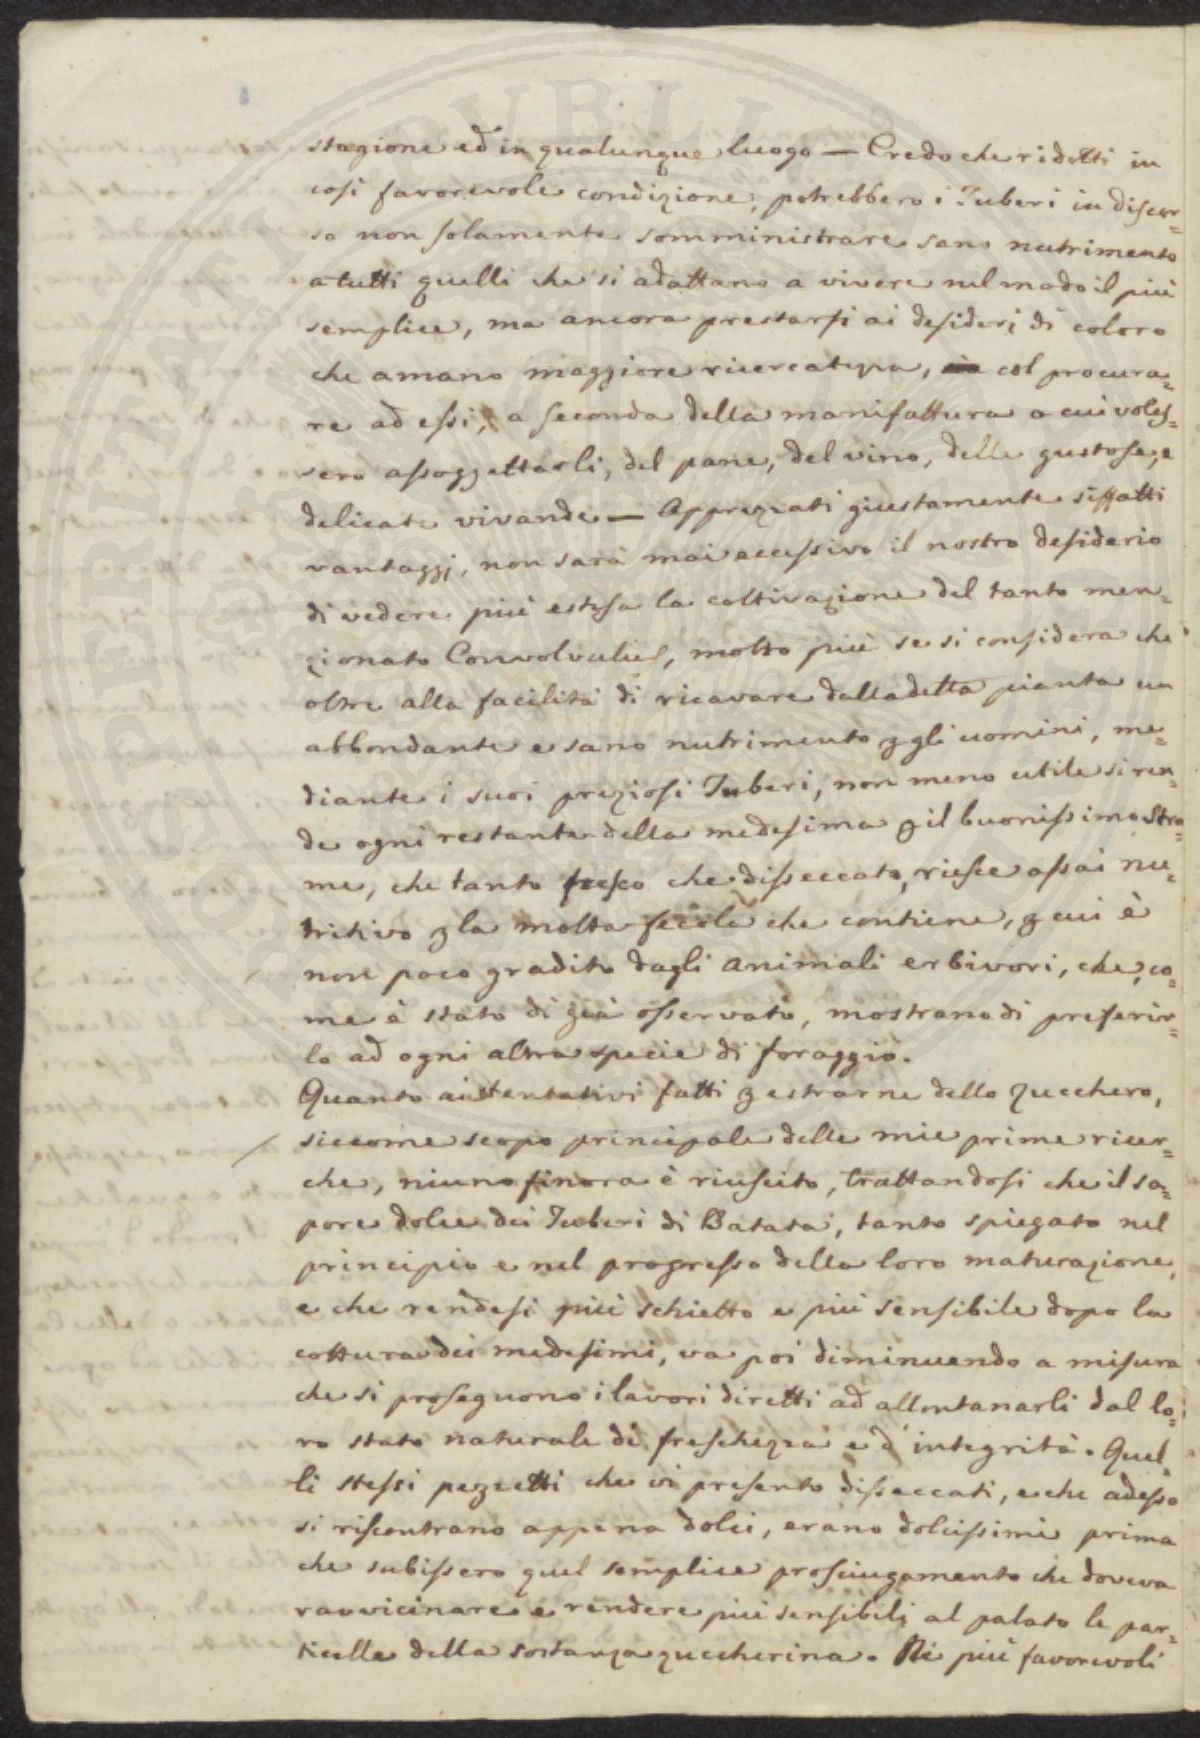 stagione ed in qualunque luogo — Credo che ridotti in
così favorevole condizione, potrebbero i Tuberi in discor=
so non solamente somministrare sano nutrimento
a tutti quelli che si adattano a vivere nel modo il più
semplice, ma ancora prestarsi ai desiderj di coloro
che amano maggiore ricercatezza, col procura=
re ad essi, a seconda della manifattura a cui voles=
sero assoggettarli, del pane, del vino, delle gustose, e
delicate vivande — Apprezzati giustamente siffatti
vantaggj, non sarà mai eccessivo il nostro desiderio
di vedere più estesa la coltivazione del tanto men=
zionato Convolvulus, molto più se si considera che
oltre alla facilità di ricavare dalla detta pianta un
abbondante e sano nutrimento p gli uomini, me=
diante i suoi preziosi Tuberi, non meno utile si ren=
de ogni restante della medesima p il buonissimo stra=
me, che tanto fresco che disseccato, riesce assai nu=
tritivo p la molta fecola che contiene, p cui è
non poco gradito dagli animali erbivori, che, co=
me è stato di già osservato, mostrano di preferir=
lo ad ogni altra specie di foraggio.
Quanto ai tentativi fatti p estrarne dello zucchero,
siccome scopo principale delle mie prime ricer=
che, niuno finora è riuscito, trattandosi che il sa=
pore dolce dei Tuberi di Batata, tanto spiegato nel
principio e nel progresso della loro maturazione,
e che rendesi più schietto e più sensibile dopo la
cottura dei medesimi, va poi diminuendo a misura
che si proseguono i lavori diretti ad allontanarli dal lo=
ro stato naturale di freschezza e d'integrità. Quel=
li stessi pezzetti che vi presento disseccati, e che adesso
si riscontrano appena dolci, erano dolcissimi prima
che subissero quel semplice prosciugamento che doveva
ravvicinare e rendere più sensibili al palato le par=
ticelle della sostanza zuccherina. Ne più favorevoli